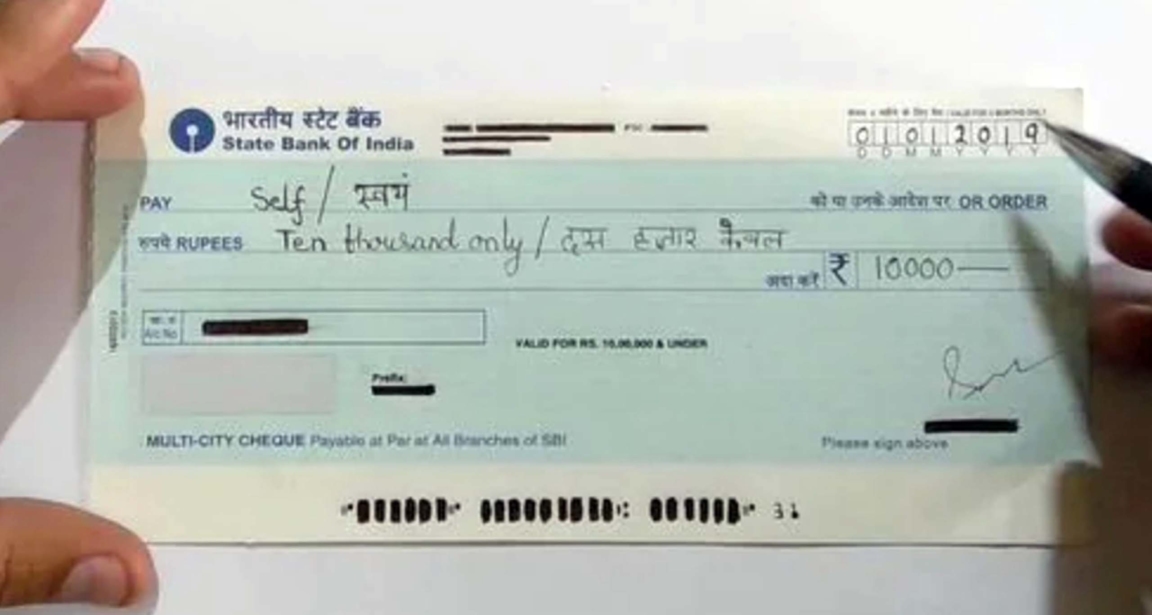 भारतीय स्टेट बैंक
State Bank Of India
VALID FOR 3 MONTHS ONLY
01012019
D D M M Y Y Y Y
PAY Self / स्वयं को या उनके आदेश पर OR ORDER
रुपये RUPEES Ten thousand only / दस हजार केवल
अदा करें ₹ 10000
A/c No
VALID FOR RS. 10,00,000 & UNDER
Prefix:
MULTI-CITY CHEQUE Payable at Par at All Branches of SBI
Please sign above
31